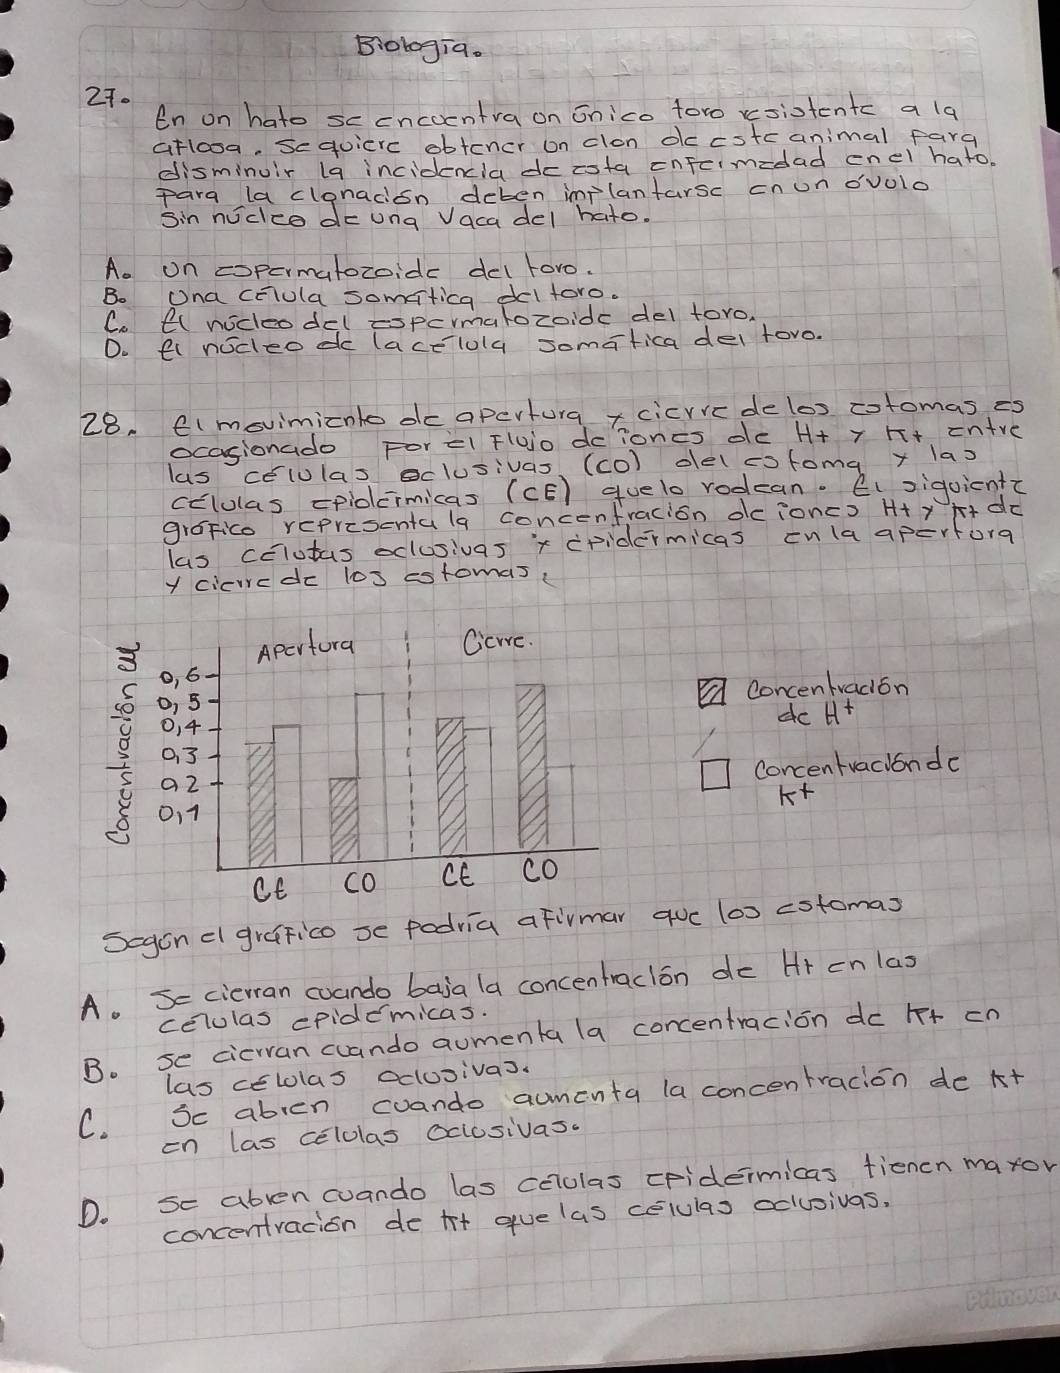 Biología.
27.
En un hato se encuentra un único toro resistente a la
aftosa. Se quiere obtener un clon de este animal para
disminuir la incidencia de esta enfermedad en el hato.
Para la clonación deben implantarse en un óvulo
sin núcleo de una vaca del hato.
A. un espermatozoide del toro.
B. Una célula somática del toro.
C. El núcleo del espermatozoide del toro.
D. El núcleo de la célula somática del toro.
28. El movimiento de apertura y cierre de los estomas es
ocasionado por el flujo de iones de H+ y K+ entre
las células oclusivas (CO) del estoma y las
células epidérmicas (CE) que lo rodean. El siguiente
gráfico representa la concentración de iones H+ y K+ de
las células oclusivas y epidérmicas en la apertura
y cierre de los estomas.
Apertura Cierre.
Concentración
0,6
0,5
0,4
0,3
0,2
0,1
CE CO CE CO
Concentración
de H+
Concentración de
K+
Según el gráfico se podría afirmar que los estomas
A. Se cierran cuando baja la concentración de H+ en las
células epidémicas.
B. se cierran cuando aumenta la concentración de K+ en
las células oclusivas.
C. Se abren cuando aumenta la concentración de K+
en las células oclusivas.
D. Se abren cuando las células epidérmicas tienen mayor
concentración de K+ que las células oclusivas.